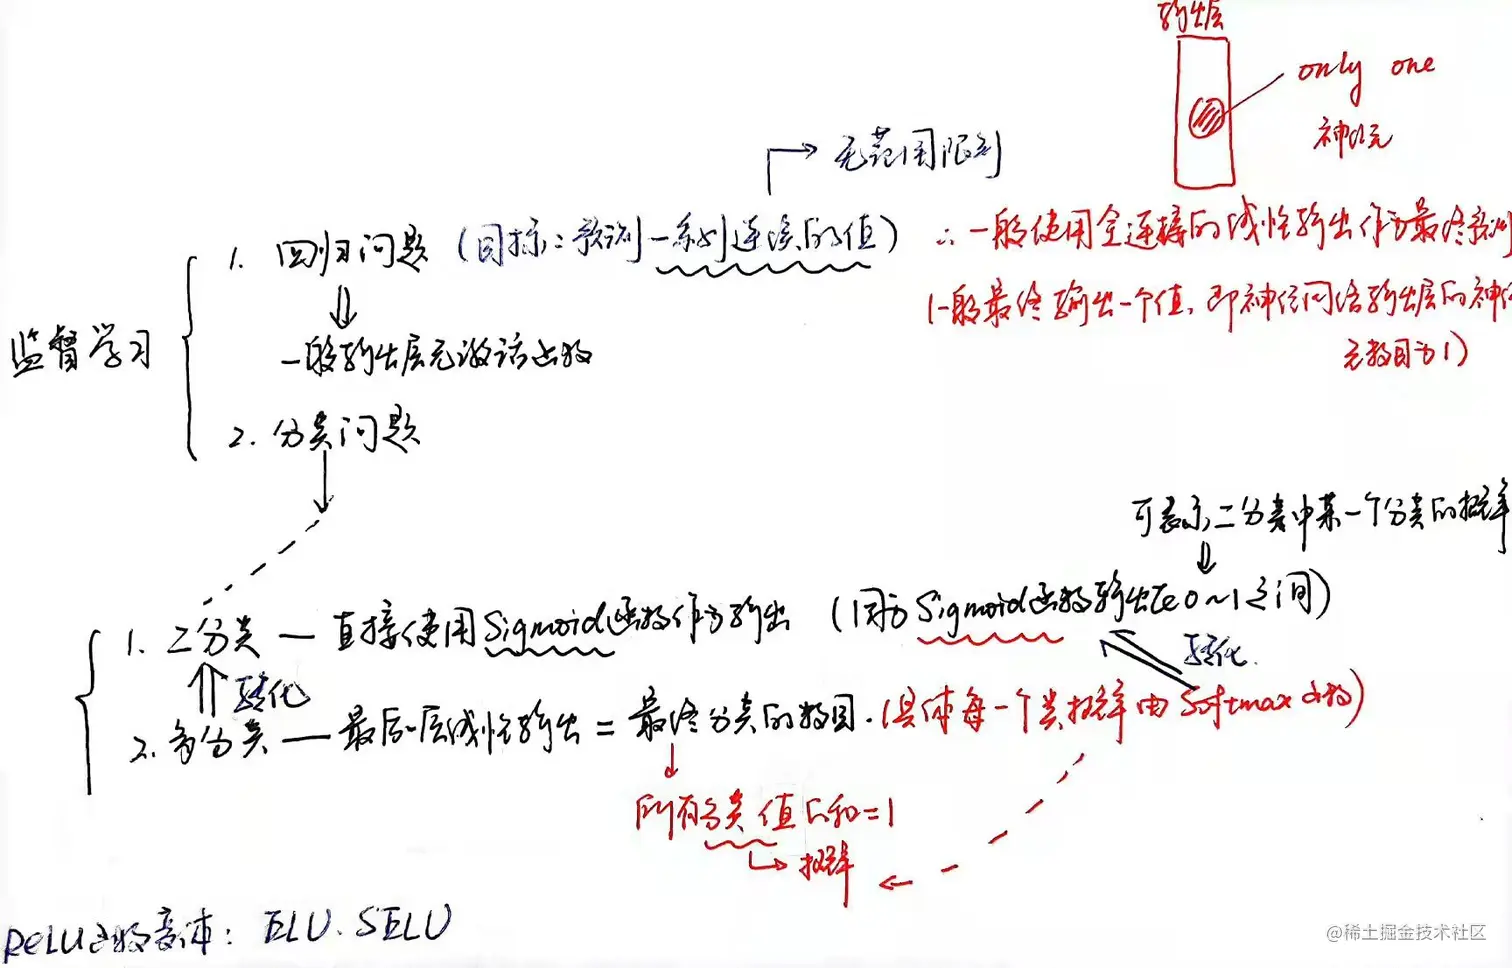 输出层
only one
神经元
无范围限制
1. 回归问题 (目标:预测一系列连续的值) ∴一般使用全连接的线性输出作为最终预测
(一般最终输出一个值,即神经网络输出层的神经
元数目为1)
一般输出层无激活函数
监督学习
2. 分类问题
可表示二分类中某一个分类的概率
1. 二分类 — 直接使用Sigmoid函数作为输出 (因为Sigmoid函数输出在0~1之间)
转化
转化.
2. 多分类 — 最后一层线性输出 = 最终分类的数目. (具体每一个类概率由Softmax函数)
所有分类值之和=1
概率
ReLU函数变体: ELU. SELU
@稀土掘金技术社区